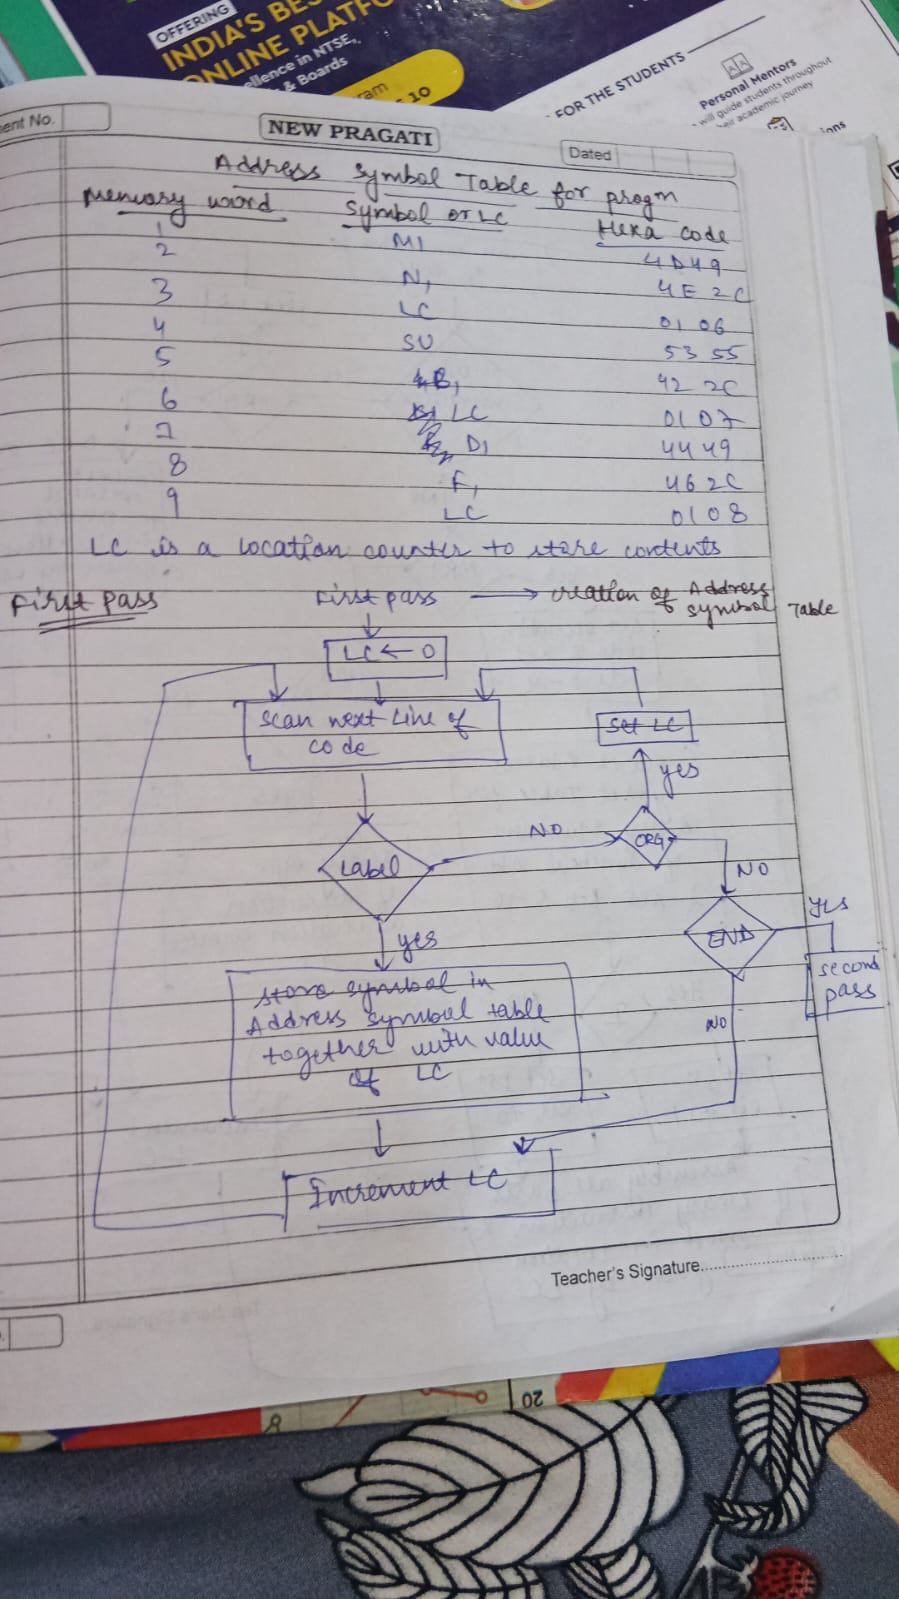 OFFERING
INDIA'S BES
ONLINE PLATFO
ellence in NTSE,
& Boards
ram
10
FOR THE STUDENTS
Personal Mentors
will guide students throughout
heir academic journey
ons
ent No.
NEW PRAGATI
Dated
Address Symbol Table for progm
Memory word Symbol or LC Hexa code
1 MI 4D49
2 N, 4E 2C
3 LC 01 06
4 SU 53 55
5 B, 42 2C
6 LC 0107
7 DI 4449
8 F, 462C
9 LC 0108
LC is a location counter to store contents
First pass First pass → creation of Address
symbol Table
LC ← 0
scan next line of
code
set LC
yes
NO
ORG
Label
NO
yes
END
yes
second
pass
store symbol in
Address symbol table
together with value
of LC
NO
Increment LC
Teacher's Signature
20
8